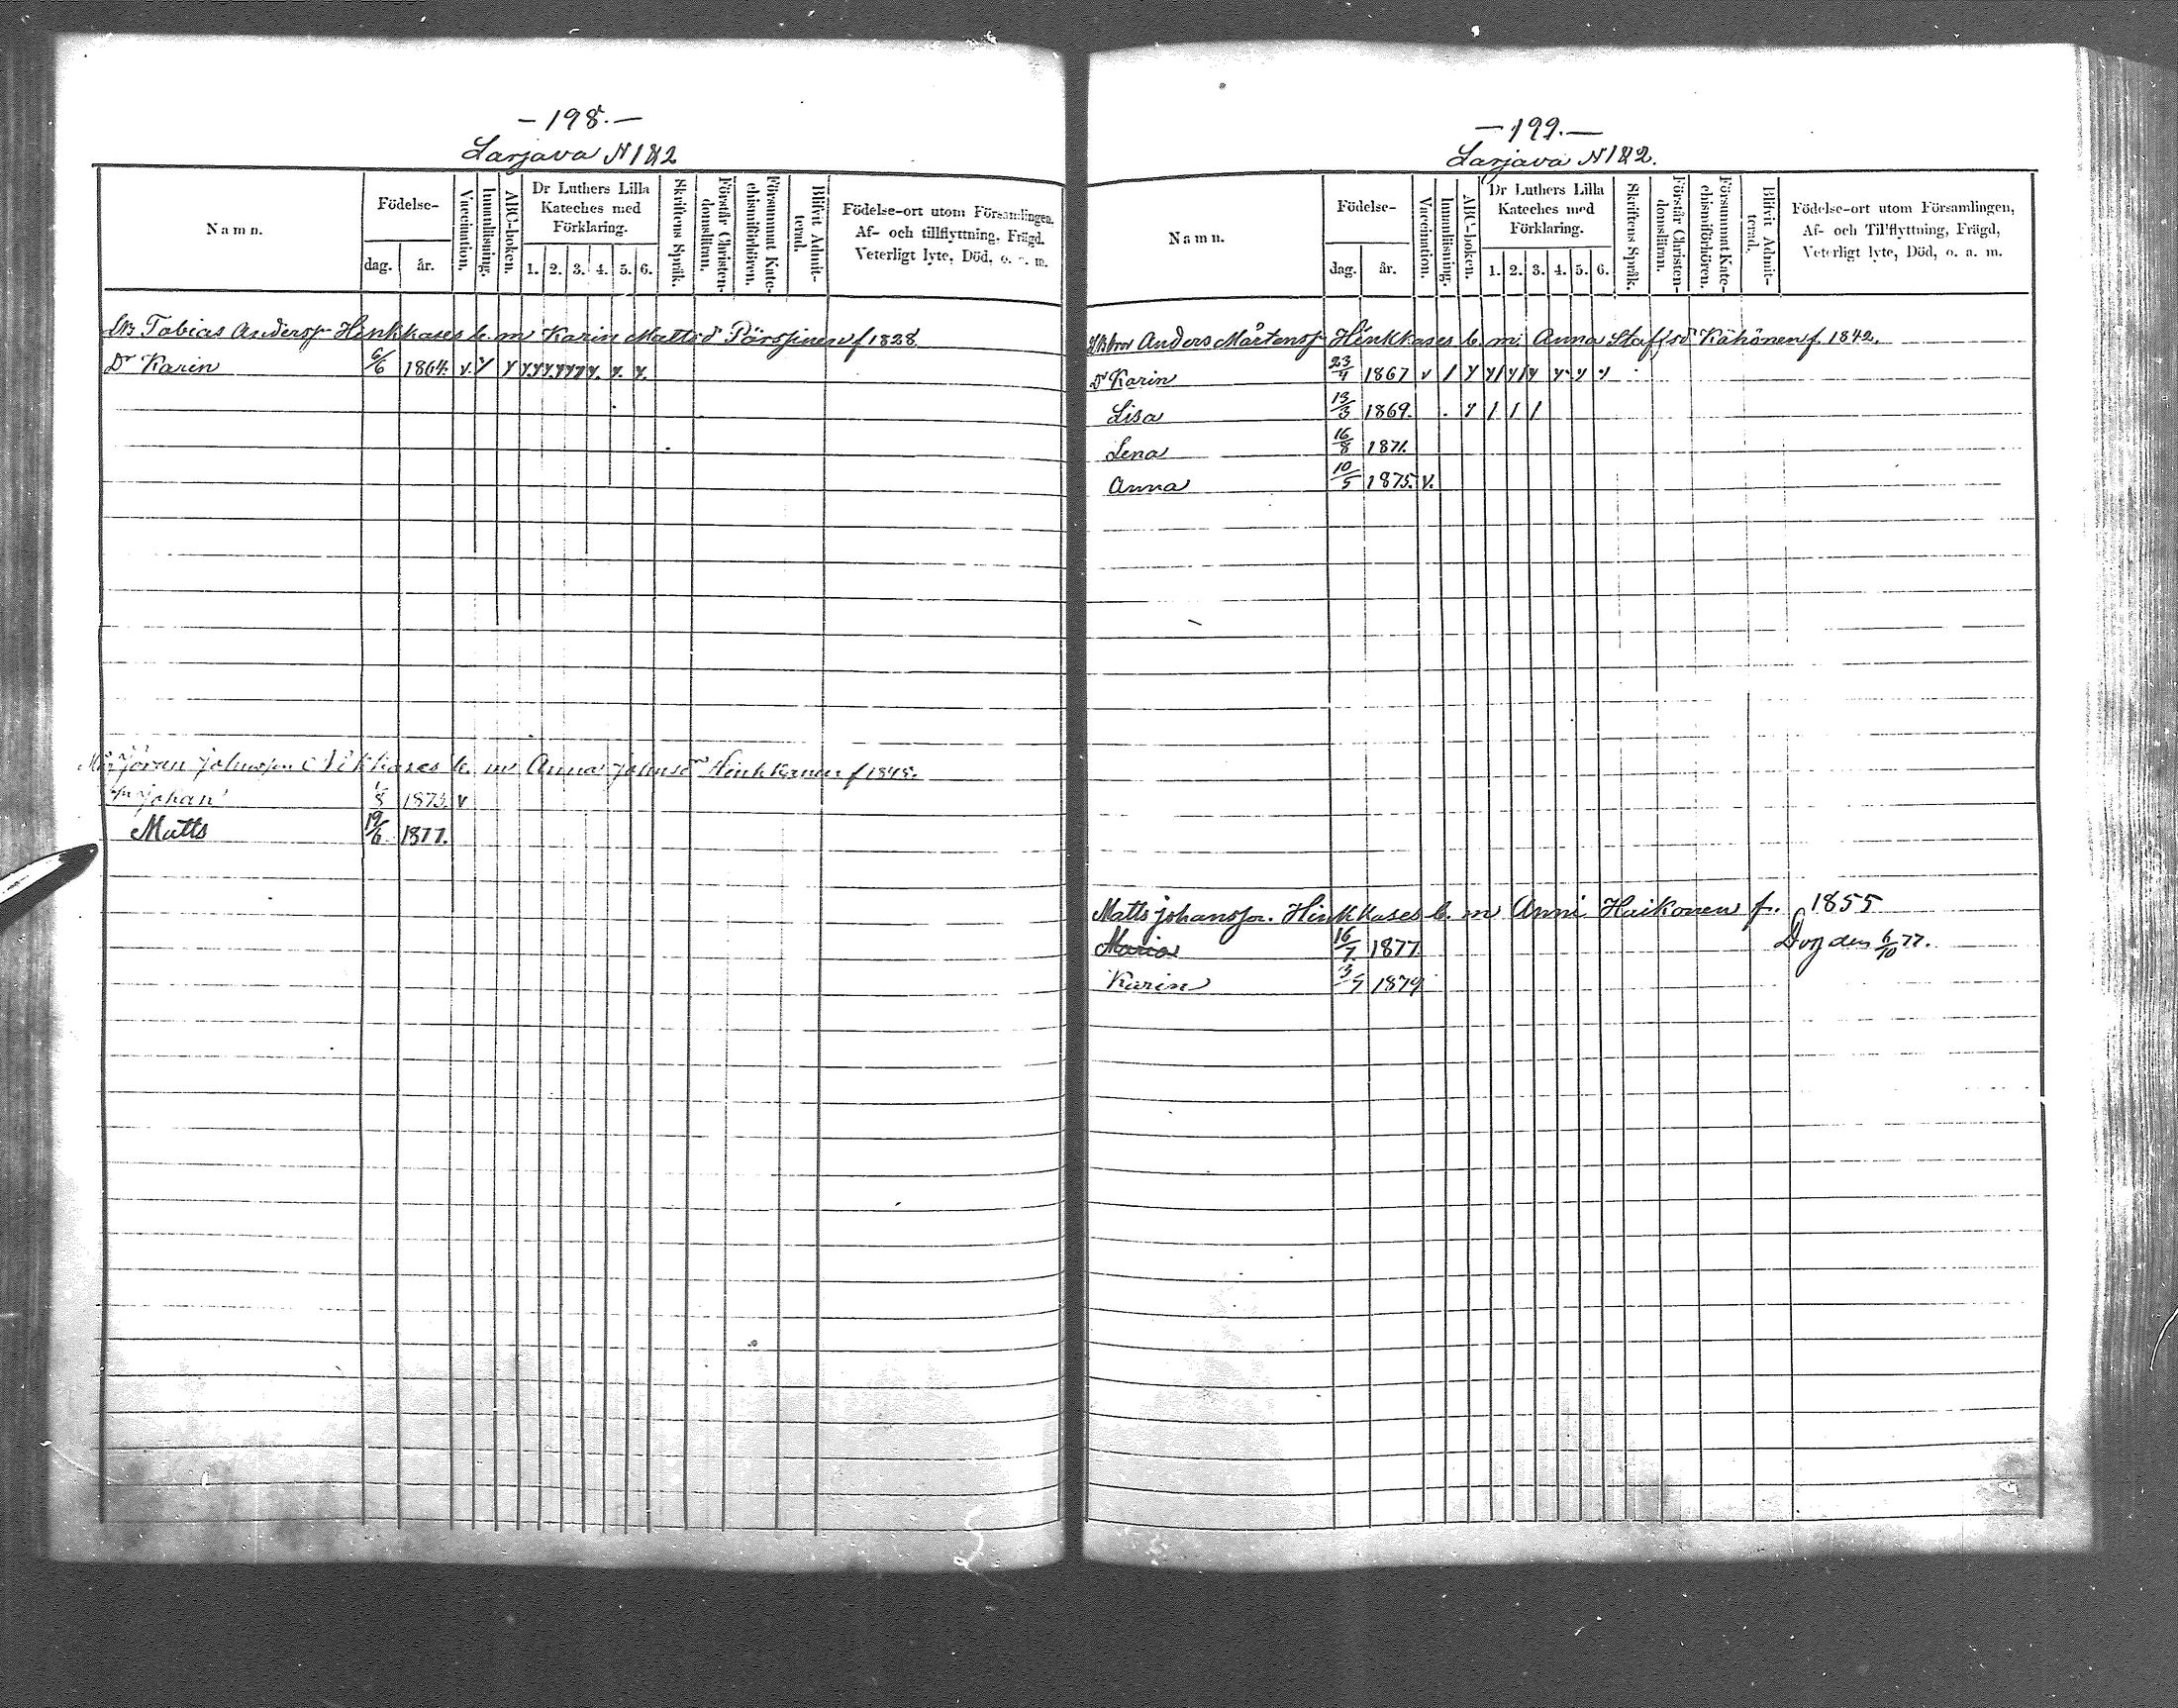 —198.—
Larjava N 1&2
Namn.
Födelse-
dag.
år.
Vaccination.
Innanläsning.
ABC-boken.
Dr Luthers Lilla
Kateches med
Förklaring.
1. 2. 3. 4. 5. 6.
Skriftens Språk.
Förstår Christen-
domsläran.
Försummat Kate-
chismiförhören.
Blifvit Admit-
terad.
Födelse-ort utom Församlingen,
Af- och tillflyttning, Frägd,
Veterligt lyte, Död, o. a. m.
Tobias Anderss. Hinkkases b. m Karin Mattsd Pärssinen f 1828
Dr Karin 6/6 1864. v. y y y y y y y y y. y. y.
Jöran Johnsson Nikkases b. m Anna Johnsdr Hinkkanen f 1848.
Johan 1/8 1873. v
Matts 19/6 1877.
—199.—
Larjava N 1&2.
Namn.
Födelse-
dag.
år.
Vaccination.
Innanläsning.
ABC-boken.
Dr Luthers Lilla
Kateches med
Förklaring.
1. 2. 3. 4. 5. 6.
Skriftens Språk.
Förstår Christen-
domsläran.
Försummat Kate-
chismiförhören.
Blifvit Admit-
terad.
Födelse-ort utom Församlingen,
Af- och Tillflyttning, Frägd,
Veterligt lyte, Död, o. a. m.
Anders Mårtenss. Hinkkases b. m Anna Staffsd Kähönen f. 1842.
Dr Karin 23/4 1867 v / y y/ y/ y y. y y
Lisa 13/3 1869. . y / / /
Lena 16/8 1871.
Anna 10/5 1875. v.
Matts Johansson. Hinkkases b. m Anni Haikonen f. 1855
Maria 16/7 1877. Dog den 6/10 77.
Karin 3/7 1879